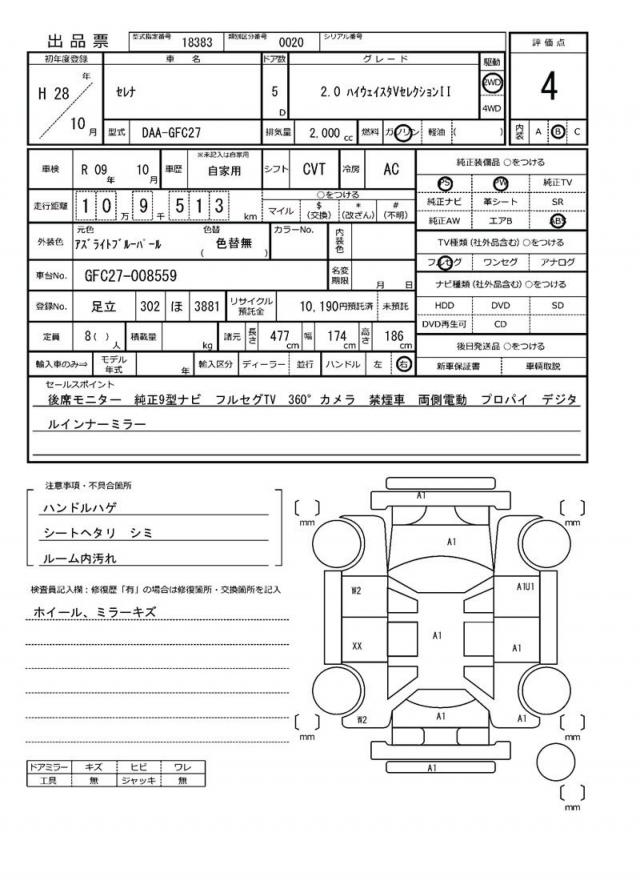 出品票 型式指定番号 18383 類別区分番号 0020 シリアル番号
評価点
4
内装 A B C
初年度登録 車名 ドア数 グレード 駆動
H 28 年 10 月 セレナ 5 D 2.0 ハイウェイスタVセレクションII 2WD 4WD
型式 DAA-GFC27 排気量 2,000 cc 燃料 ガソリン 軽油 ( )
車検 R 09 年 10 月 車歴 ※未記入は自家用 自家用 シフト CVT 冷房 AC
走行距離 10万9千513 km ○をつける
マイル $(交換) *(改ざん) #(不明)
外装色 元色 アズライトブルーパール 色替 ( 色替無 ) カラーNo. 内装色
車台No. GFC27-008559 名変期限 月 日
登録No. 足立 302 ほ 3881 リサイクル預託金 10,190円預託済 未預託
定員 8( )人 積載量 kg 諸元 長さ 477 cm 幅 174 cm 高さ 186 cm
輸入車のみ⇒ モデル年式 年 輸入区分 ディーラー 並行 ハンドル 左 右
純正装備品 ○をつける
PS PW 純正TV
純正ナビ 革シート SR
純正AW エアB ABS
TV種類(社外品含む)○をつける
フルセグ ワンセグ アナログ
ナビ種類(社外品含む)○をつける
HDD DVD SD
DVD再生可 CD
後日発送品 ○をつける
新車保証書 車輌取説
セールスポイント
後席モニター 純正9型ナビ フルセグTV 360°カメラ 禁煙車 両側電動 プロパイ デジタ
ルインナーミラー
注意事項・不具合箇所
ハンドルハゲ
シートヘタリ シミ
ルーム内汚れ
検査員記入欄:修復歴「有」の場合は修復箇所・交換箇所を記入
ホイール、ミラーキズ
ドアミラー キズ ヒビ ワレ
工具 無 ジャッキ 無
A1
mm mm
A1
W2 A1U1
A1
XX A1
W2 A1 A1
mm mm
A1
mm